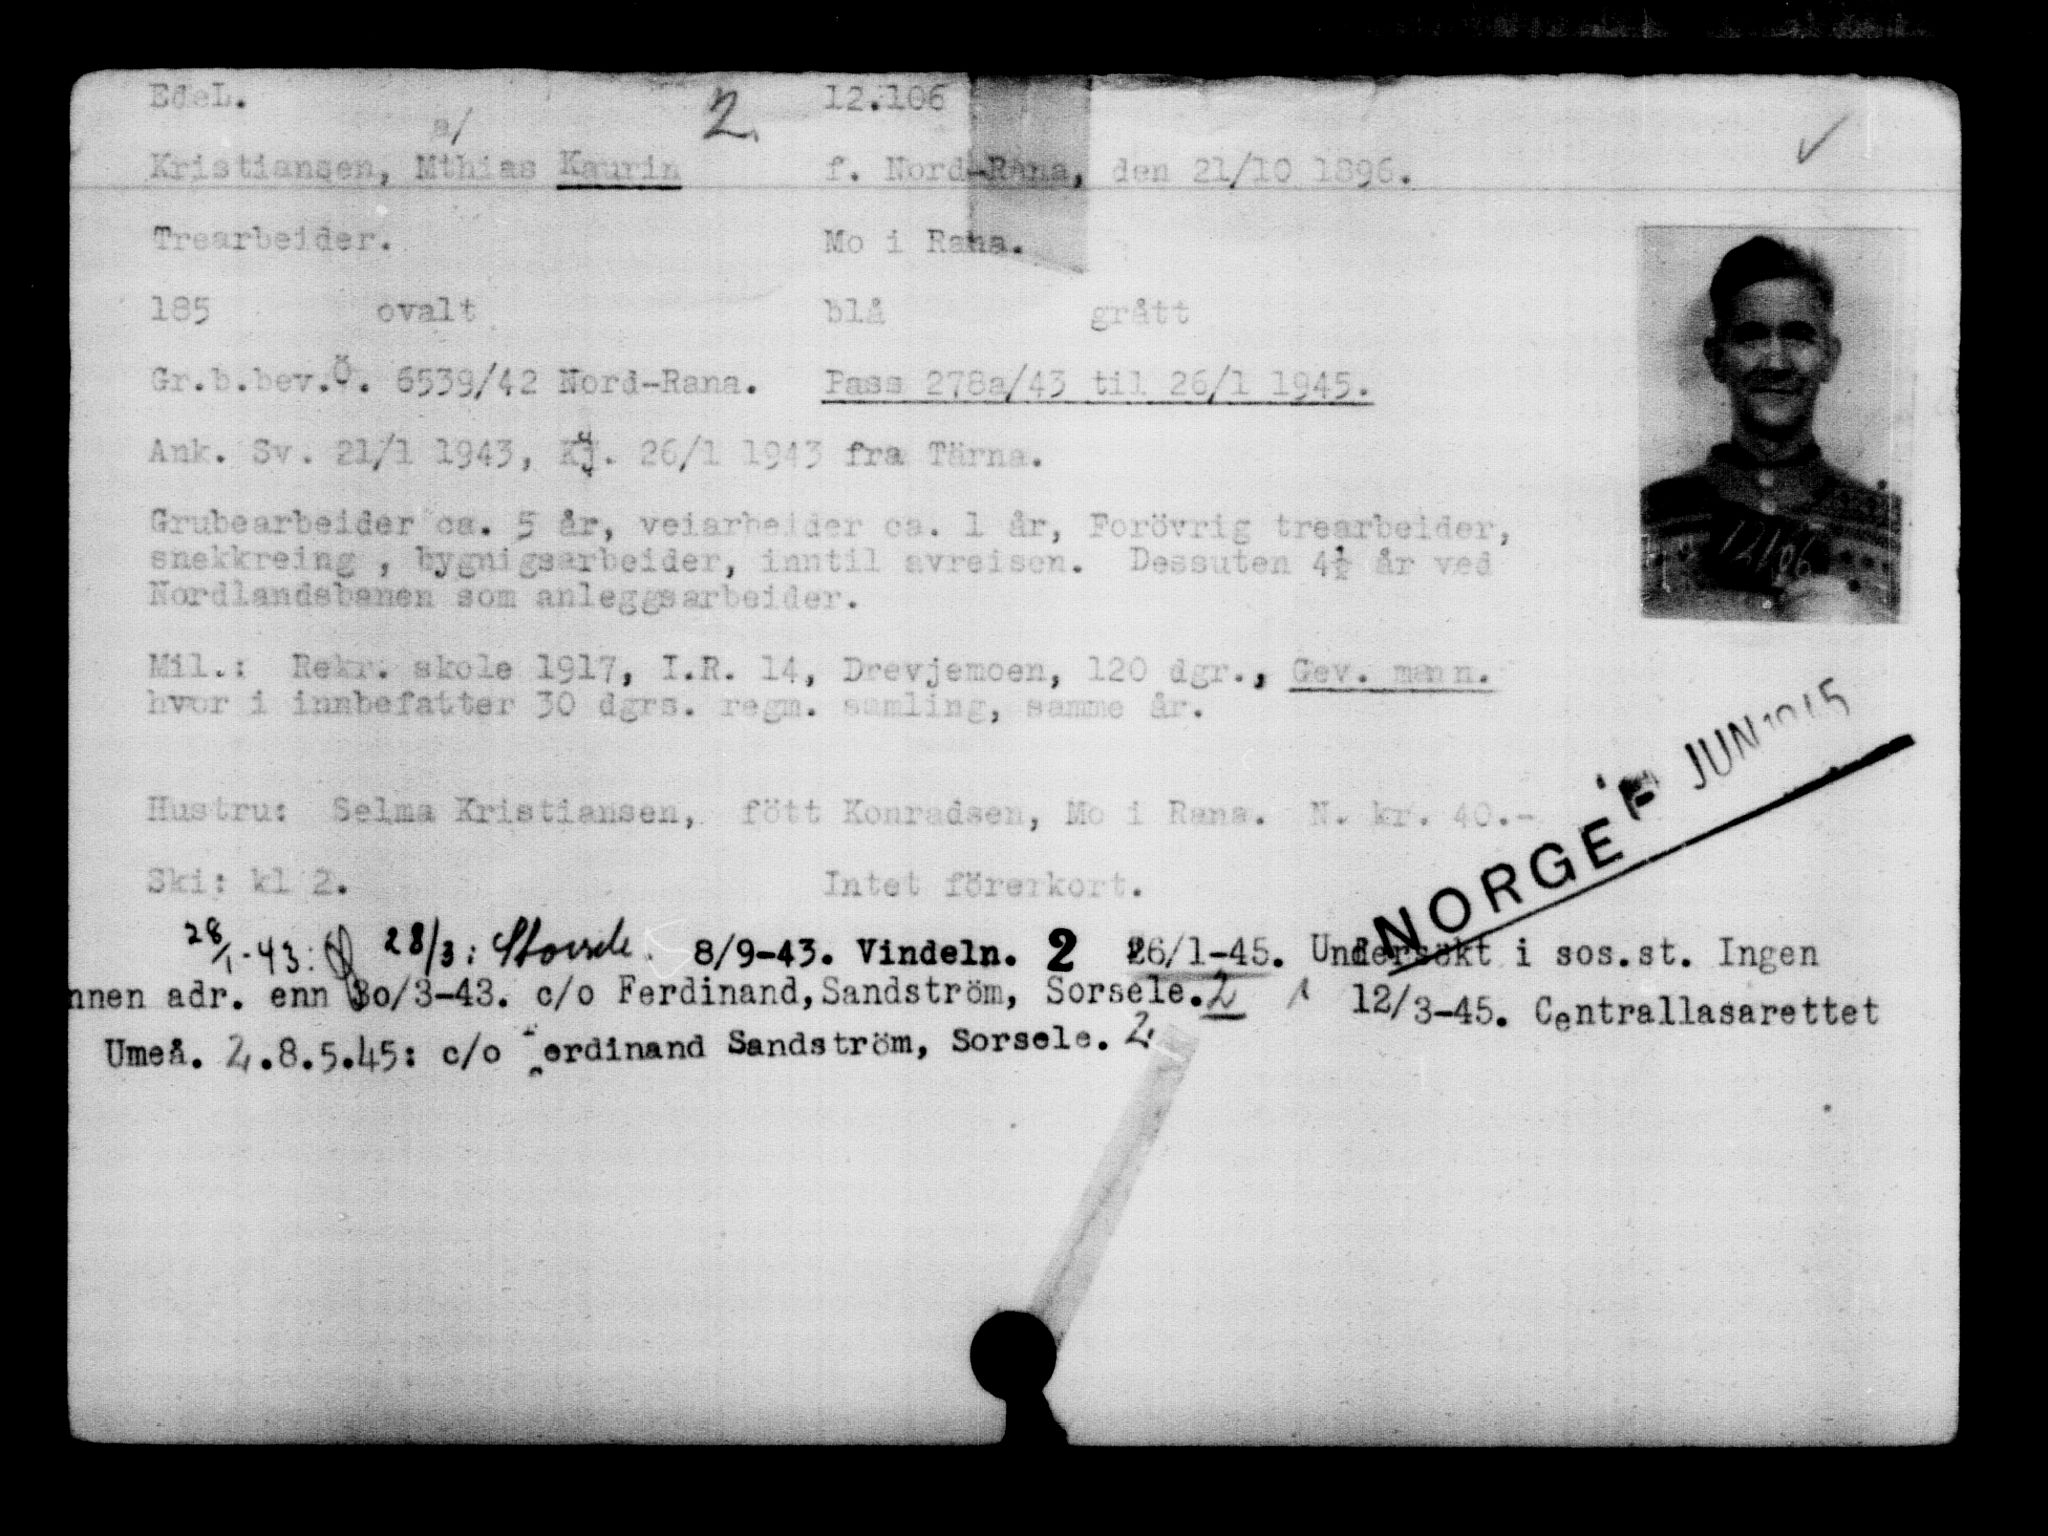 EdaL. 2. 12.106
a/
Kristiansen, Mthias Kaurin f. Nord-Rana, den 21/10 1896.
Trearbeider. Mo i Rana.
185 ovalt blå grått
Gr.b.bev.Ö. 6539/42 Nord-Rana. Pass 278a/43 til 26/1 1945.
Ank. Sv. 21/1 1943, Kj. 26/1 1943 fra Tärna.
Grubearbeider ca. 5 år, veiarbeider ca. 1 år, Forövrig trearbeider,
snekkreing , bygnigsarbeider, inntil avreisen. Dessuten 4½ år ved
Nordlandsbanen som anleggsarbeider.
12106
Mil.: Rekr. skole 1917, I.R. 14, Drevjemoen, 120 dgr., Gev. mann.
hvor i innbefatter 30 dgrs. regm. samling, samme år.
JUN 1945
Hustru: Selma Kristiansen, fött Konradsen, Mo i Rana. N. kr. 40.-
NORGE
Ski: kl 2. Intet förerkort.
28/1-43: 28/3: 8/9-43. Vindeln. 2 26/1-45. Undersökt i sos.st. Ingen
nnen adr. enn 30/3-43. c/o Ferdinand, Sandström, Sorsele. 2 12/3-45. Centrallasarettet
Umeå. 2.8.5.45: c/o erdinand Sandström, Sorsele. 2.